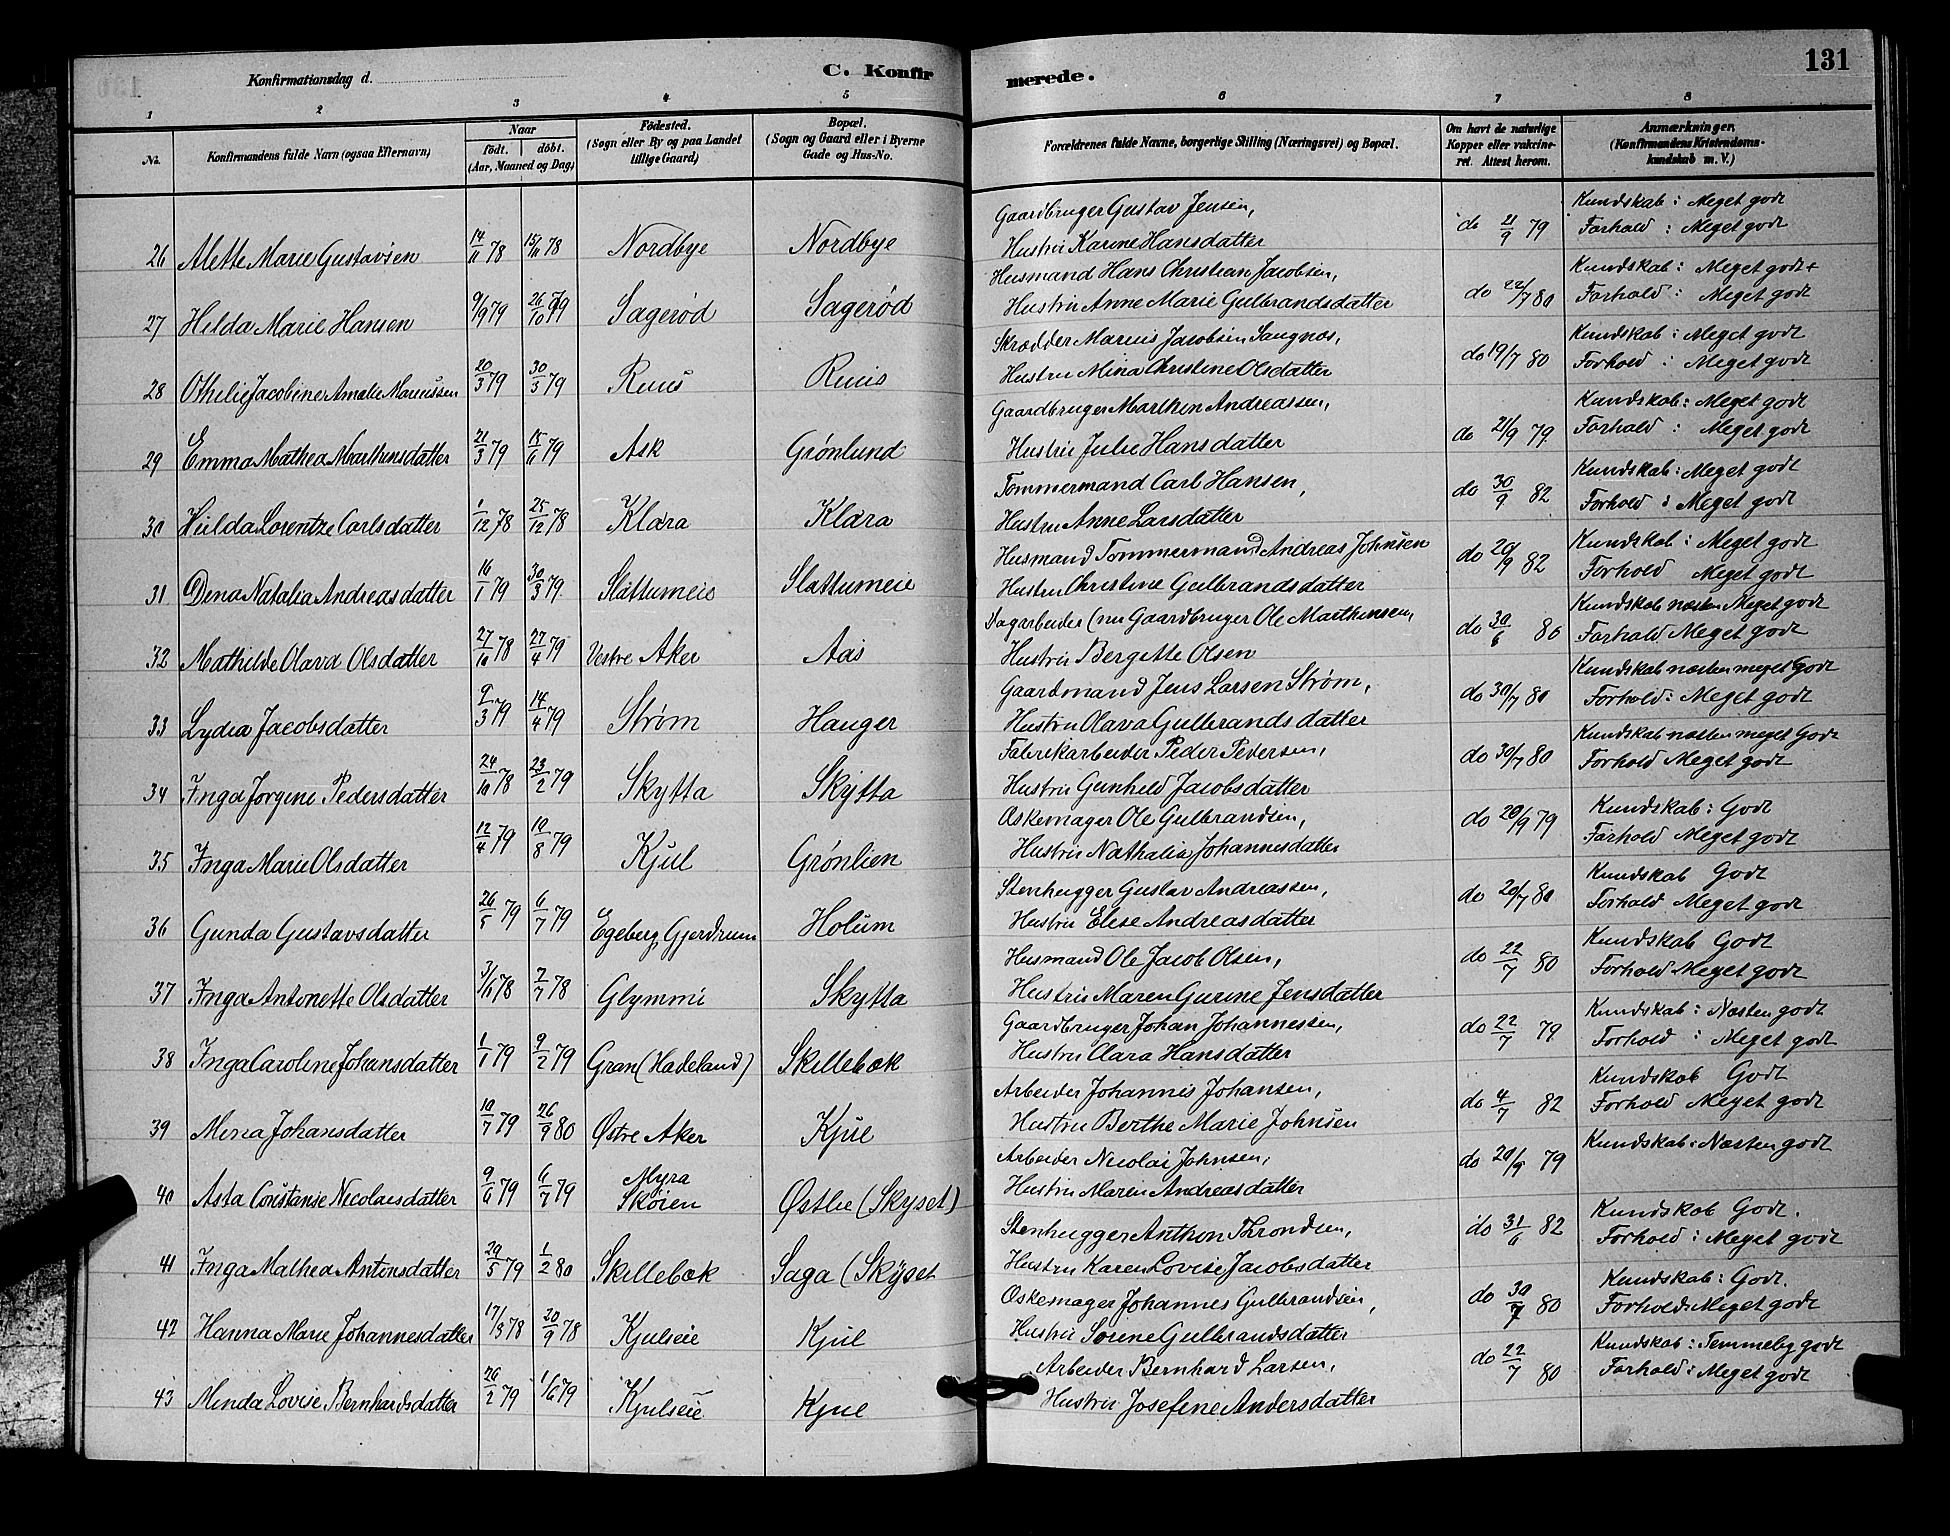 Konfirmationsdag d. C. Konfirmerede. 131
1 2 3 4 5 6 7 8
No. Konfirmandens fulde Navn (ogsaa Efternavn) Naar født. døbt. (Aar, Maaned og Dag) Fødested. (Sogn eller By og paa Landet tillige Gaard) Bopæl. (Sogn og Gaard eller i Byerne Gade og Hus-No. Forældrenes fulde Navne, borgerlige Stilling (Næringsvei) og Bopæl. Om havt de naturlige Kopper eller vaccineret. Attest herom. Anmærkninger. (Konfirmandens Kristendomskundskab m. V.)
Gaardbruger Gustav Jensen, Kundskab: Meget godt
26 Alette Marie Gustavsen 14/11 78 15/11 78 Nordbye Nordbye Hustru Karine Hansdatter do 21/9 79 Forhold: Meget godt
Husmand Hans Christian Jacobsen, Kundskab: Meget godt
27 Hilda Marie Hansen 9/9 79 26/10 79 Sagerød Sagerød Hustru Anne Marie Gulbrandsdatter do 22/7 80 Forhold: Meget godt
Skrædder Marius Jacobsen Kundskab: Meget godt
28 Othilie Jacobine Amalie Mariussen 20/3 79 30/3 79 Ruus Ruus Hustru Mina Christine Olsdatter do 19/7 80 Forhold: Meget godt
Gaardbruger Marthin Andreassen, Kundskab: Meget godt
29 Emma Mathea Marthinsdatter 21/3 79 15/6 79 Ask Grønlund Hustru Julie Hansdatter do 21/9 79 Forhold: Meget godt
Tømmermand Carl Hansen, Kundskab: Meget godt
30 Hulda Lorentze Carlsdatter 1/12 78 25/12 78 Klæra Klæra Hustru Anne Larsdatter do 30/9 82 Forhold: Meget godt
Husmand Tømmermand Andreas Johnsen Kundskab: Meget godt
31 Dina Natalia Andreasdatter 16/1 79 30/3 79 Slattumeie Slattumeie Hustru Christine Gulbrandsdatter do 20/9 82 Forhold Meget godt
Dagarbeider (nu Gaardbruger Ole Marthinsen, Kundskab næsten Meget godt
32 Mathilde Olava Olsdatter 27/10 78 27/4 79 Vestre Aker Aas Hustru Bergitte Olsen do 30/6 80 Forhold Meget godt
Gaardmand Jens Larsen Strøm, Kundskab næsten meget Godt
33 Lydia Jacobsdatter 9/3 79 14/4 79 Strøm Hauger Hustru Olava Gulbrandsdatter do 30/7 80 Forhold: Meget godt
Fabrikarbeider Peder Pedersen, Kundskab næsten meget Godt
34 Inga Jørgine Pedersdatter 24/10 78 23/2 79 Skytta Skytta Hustru Gunhild Jacobsdatter do 30/7 80 Forhold Meget godt
Øskemager Ole Gulbrandsen, Kundskab: Godt
35 Inga Marie Olsdatter 12/4 79 10/8 79 Kjul Grønlien Hustru Nathalia Johannesdatter do 20/9 79 Forhold Meget godt
Stenhugger Gustav Andreassen, Kundskab Godt
36 Gunda Gustavsdatter 26/5 79 6/7 79 Egeberg, Gjerdrum Holum Hustru Elise Andreasdatter do 20/7 80 Forhold Meget godt
Husmand Ole Jacob Olsen, Kundskab Godt
37 Inga Antonette Olsdatter 3/6 78 7/7 78 Glymmi Skytta Hustru Maren Gurine Jensdatter do 22/7 80 Forhold Meget godt
Gaardbruger Johan Johannessen, Kundskab: Næsten godt
38 Inga Caroline Johansdatter 1/1 79 9/2 79 Gran (Hadeland) Skillebæk Hustru Clara Hansdatter do 22/7 79 Forhold: Meget godt
Arbeider Johannis Johansen, Kundskab Godt
39 Mina Johansdatter 10/7 79 26/9 80 Østre Aker Kjul Hustru Berthe Marie Johnsen do 4/7 82 Forhold Meget godt
Myra Arbeider Nicolai Johnsen, Kundskab: Næsten godt
40 Asta Constanse Nicolaisdatter 9/6 79 6/7 79 Skøien Østbu (Skyset) Hustru Maren Andreasdatter do 20/9 79
Stenhugger Anthon Throndsen, Kundskab Godt.
41 Inga Mathea Antonsdatter 29/5 79 1/2 80 Skillebæk Saga (Skyset Hustru Karen Lovise Jacobsdatter do 31/6 82 Forhold: Meget godt
Øskemager Johannes Gulbrandsen, Kundskab: Godt.
42 Hanna Marie Johannesdatter 17/3 78 20/9 78 Kjulseie Kjul Hustru Sørine Gulbrandsdatter do 30/7 80 Forhold: Meget godt
Arbeider Bernhard Larsen, Kundskab: Temmelig godt
43 Minda Lovise Bernhardsdatter 26/2 79 1/6 79 Kjulseie Kjul Hustru Josefine Andersdatter do 22/7 80 Forhold: Meget godt